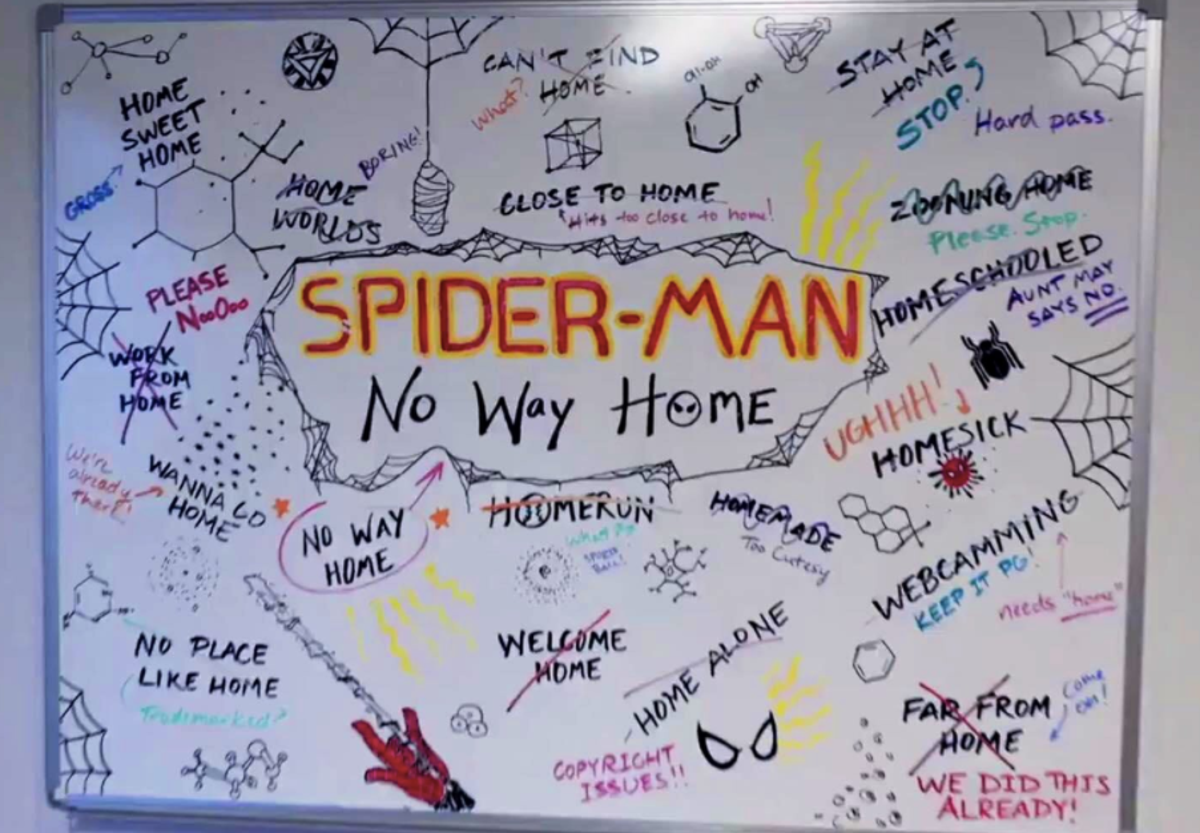 HOME
SWEET
HOME
GROSS
HOME
WORLDS
BORING!
CAN'T FIND
HOME
What?
CLOSE TO HOME
Hits too close to home!
OH
STAY AT
HOME
STOP.
Hard pass.
ZOONUNG HOME
Please. Stop.
HOMESCHOOLED
AUNT MAY
SAYS NO.
SPIDER-MAN
No Way HOME
PLEASE
NooOoo
WORK
FROM
HOME
UGHHH!
HOMESICK
We're
already
there!
WANNA GO
HOME
NO WAY
HOME
HOOMERUN
HOMEMADE
Too Cutesy
WEBCAMMING
KEEP IT PG!
needs "home"
NO PLACE
LIKE HOME
Trademarked?
WELCOME
HOME
HOME ALONE
COPYRIGHT
ISSUES!!
FAR FROM
HOME
Come
on!
WE DID THIS
ALREADY!